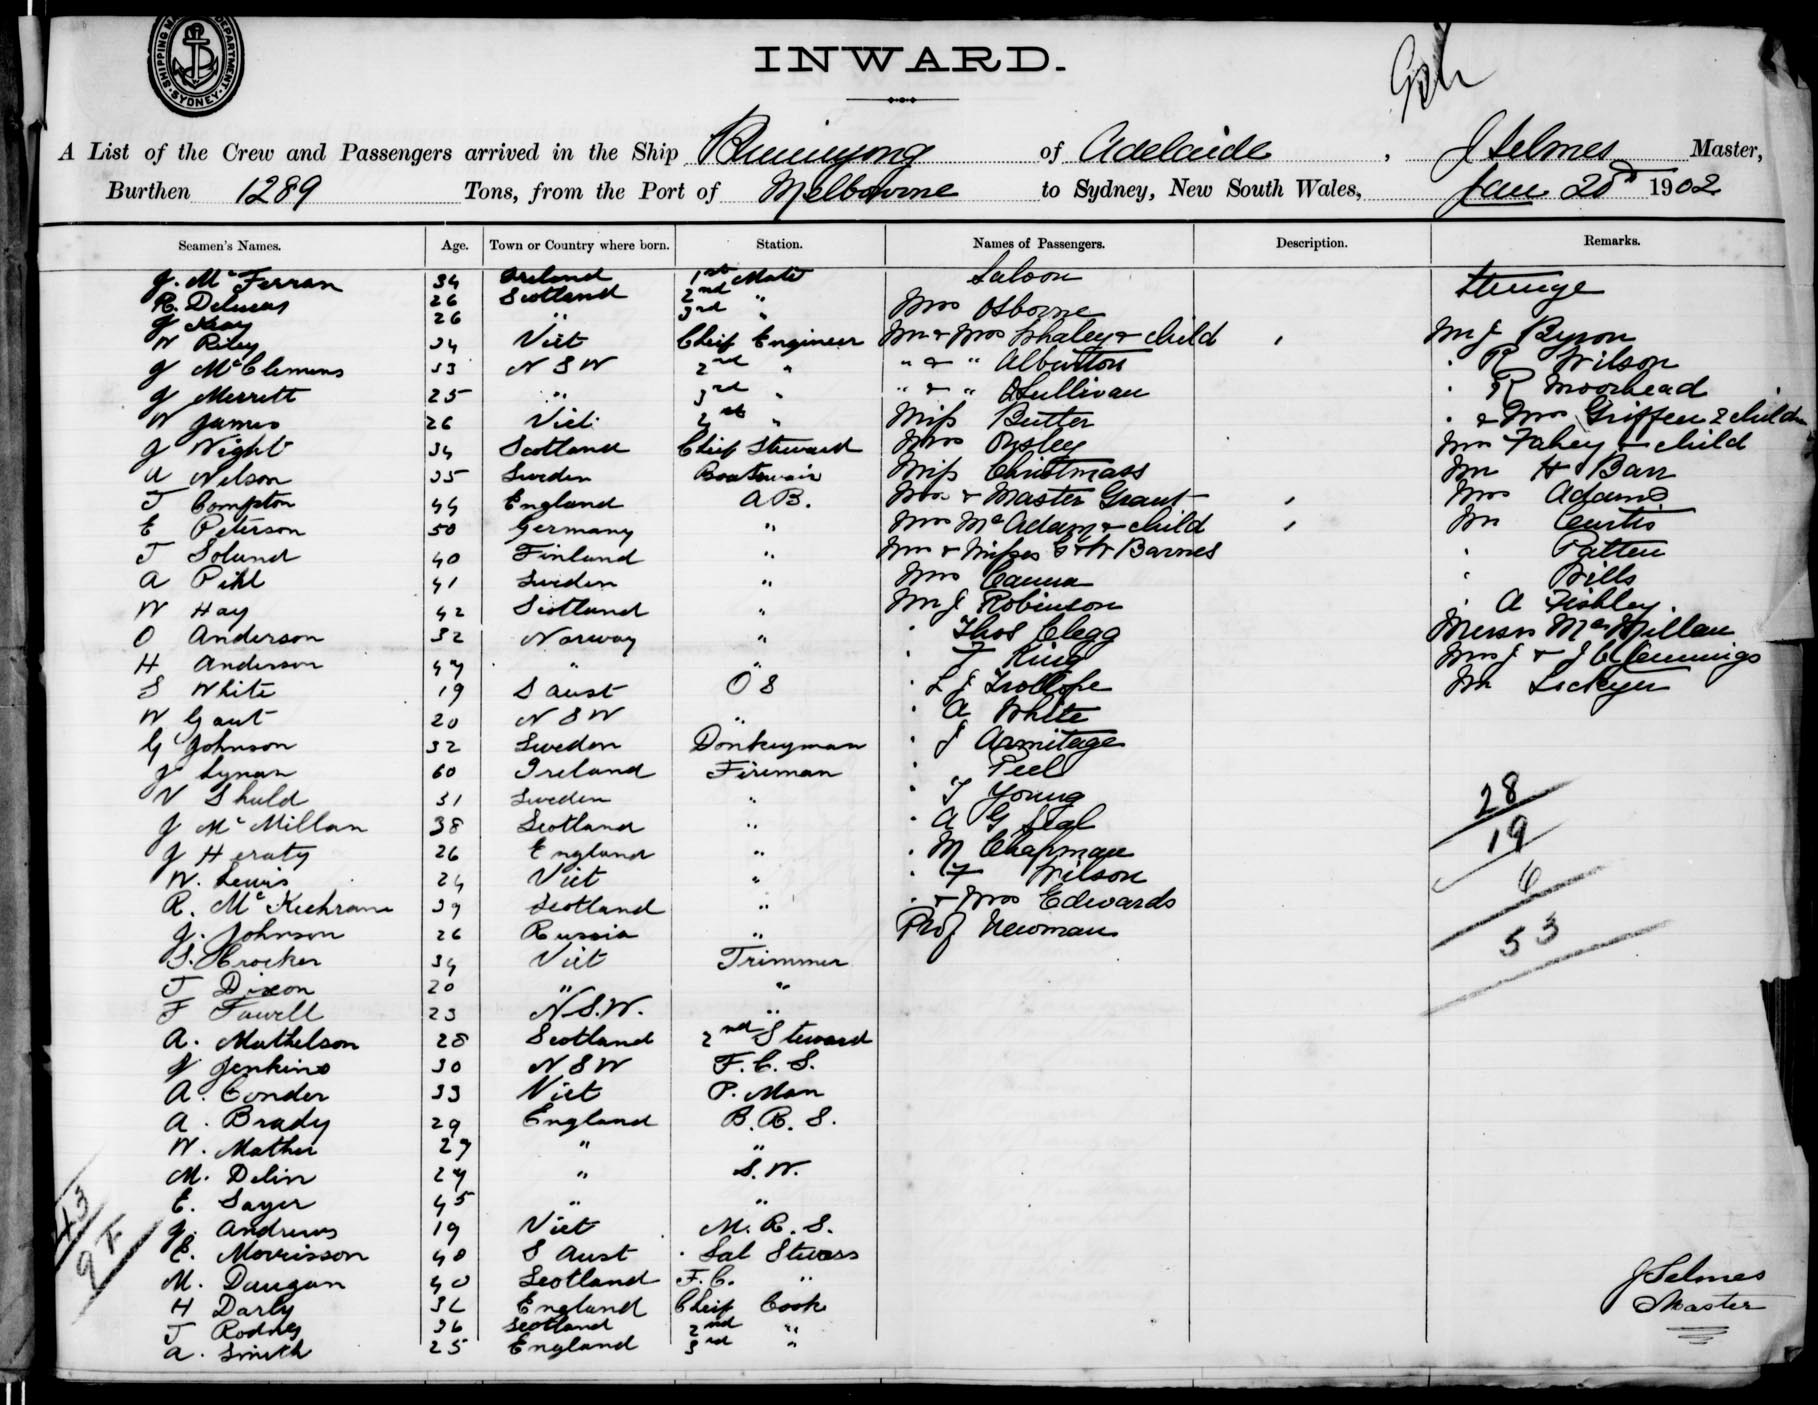 SHIPPING DEPARTMENT SYDNEY
INWARD.
A List of the Crew and Passengers arrived in the Ship Buninyong of Adelaide, J Selmes Master,
Burthen 1289 Tons, from the Port of Melbourne to Sydney, New South Wales, Jan 20th 1902
Seamen's Names. Age. Town or Country where born. Station. Names of Passengers. Description. Remarks.
J. McFerran 34 Ireland 1st Mate Saloon Steerage
R. 26 Scotland 2nd " Mrs Osborne
J Kay 26 " 3rd "
W Riley 34 Vict Cheif Engineer Mr & Mrs Whaley & child Mr J Byron
J McClemens 33 N S W 2nd " " & " Albutton . R Wilson
J Merrett 25 " 3rd " " & " OSullivan . R Moorhead
W James 26 Vict. 4st " Miss Butter . & Mrs Griffen 2 children
J Wight 34 Scotland Cheif Steward Mrs Onsley Mrs Fahey & child
A Nelson 35 Sweden Boatswain Miss Christmass Mr H Barr
T Compton 44 England A B. Mrs & Master Grant Mrs Adams
E Peterson 50 Germany " Mrs McAdam & child Mr Curtis
T Solund 40 Finland " Mrs & Misses G & W Barnes . Patten
A Pihl 41 Sweden " Mrs Canna . Wills
W Hay 42 Scotland " Mr J Robinson . A Fishley.
O Anderson 32 Norway " . Thos Clegg Messrs McMillan
H Anderson 47 " " . F King Mrs J & J C Cummings
S White 19 S Aust O S . L J Trollope Mr Lickyer
W Gaut 20 N S W " . A White
G Johnson 32 Sweden Donkeyman . J Armitage
J Lynan 60 Ireland Fireman . Peel
V Shuld 31 Sweden " . T Young 28
J McMillan 38 Scotland " . A G Seal 19
J Heraty 26 England " . M Chapman
W. Lewis 24 Vict " . F Wilson 6
R. McKechran 39 Scotland " . & Mrs Edwards
J. Johnson 26 Russia " Prof Newman 53
S. Crocker 34 Vict Trimmer
T Dixon 20 " "
F Fowell 23 N.S.W. "
A. Mathelson 28 Scotland 2nd Steward
N Jenkins 30 N S W F. C. S.
A. Conder 33 Vict P. Man
A. Brady 29 England B. R. S.
W. Mather 27 " "
M. Delin 27 " S. W.
E. Sayer 45 " "
J. Andrews 19 Vict M. R. S.
E. Morrisson 40 S Aust . Sal Stwess
M. Daugan 40 Scotland F. C. "
H Darly 32 England Cheif Cook
T Rodney 36 Scotland 2nd "
A. Smith 25 England 3rd "
43
2 F
J Selmes
Master